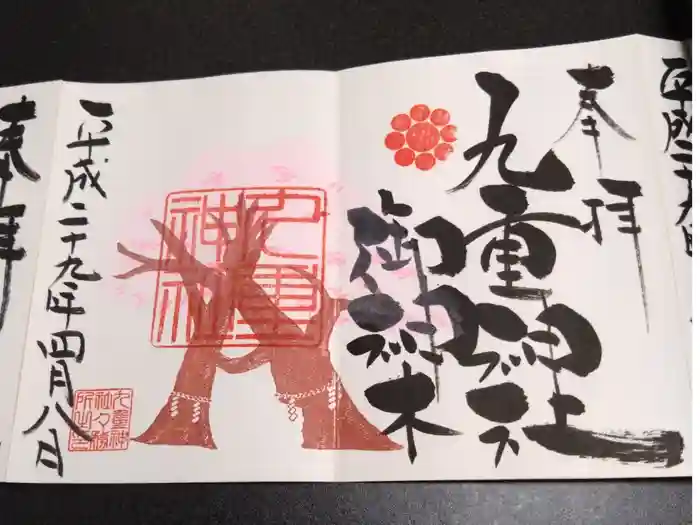 平成二十九年
奉拝
九重神社
御神木
九重
神社
平成二十九年四月八日
九重神
社々務
所之印
奉拝